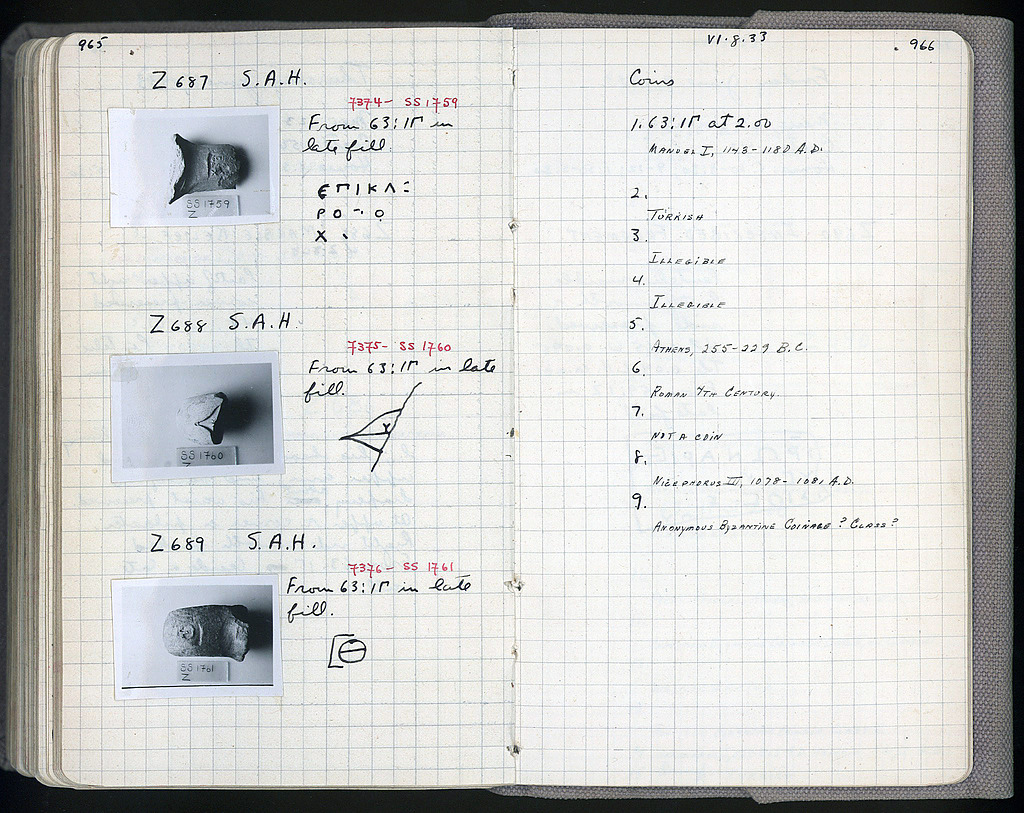 965
Z 687 S.A.H.
7374 - SS 1759
From 63:ΙΓ in
late fill.
SS 1759
Z
ΕΠΙΚΛ
ΡΟ
Χ
Z 688 S.A.H.
7375 - SS 1760
From 63:ΙΓ in late
fill.
SS 1760
Z
Z 689 S.A.H.
7376 - SS 1761
From 63:ΙΓ in late
fill.
SS 1761
Z
VI.8.33
966
Coins
1. 63:ΙΓ at 2.00
MANUEL I, 1143-1180 A.D.
2.
TURKISH
3.
ILLEGIBLE
4.
ILLEGIBLE
5.
ATHENS, 255-229 B.C.
6.
ROMAN 4TH CENTURY.
7.
NOT A COIN
8.
NICEPHORUS III, 1078-1081 A.D.
9.
ANONYMOUS BYZANTINE COINAGE? CLASS?